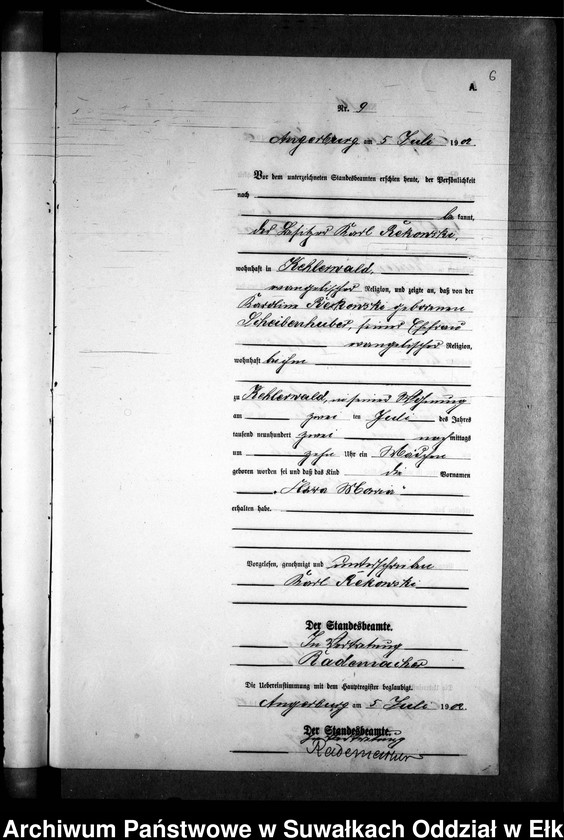 6
A.
Nr. 9
Angerburg am 5 Juli 1902.
Vor dem unterzeichneten Standesbeamten erschien heute, der Persönlichkeit
nach
be kannt,
der Besitzer Karl Rekowski,
wohnhaft in Kehlerwald,
evangelischer Religion, und zeigte an, daß von der
Karoline Rekowski geborenen
Scheibenhuber, seiner Ehefrau
evangelischer Religion,
wohnhaft bei ihm
zu Kehlerwald, in seiner Wohnung
am zwei ten Juli des Jahres
tausend neunhundert zwei nach mittags
um zehn Uhr ein Mädchen
geboren worden sei und daß das Kind die Vornamen
Maria
erhalten habe.
Vorgelesen, genehmigt und unterschrieben
Karl Rekowski
Der Standesbeamte.
In Vertretung
Rademacher
Die Uebereinstimmung mit dem Hauptregister beglaubigt.
Angerburg am 5 Juli 1902
Der Standesbeamte.
In Vertretung
Rademacher
Archiwum Państwowe w Suwałkach Oddział w Ełk